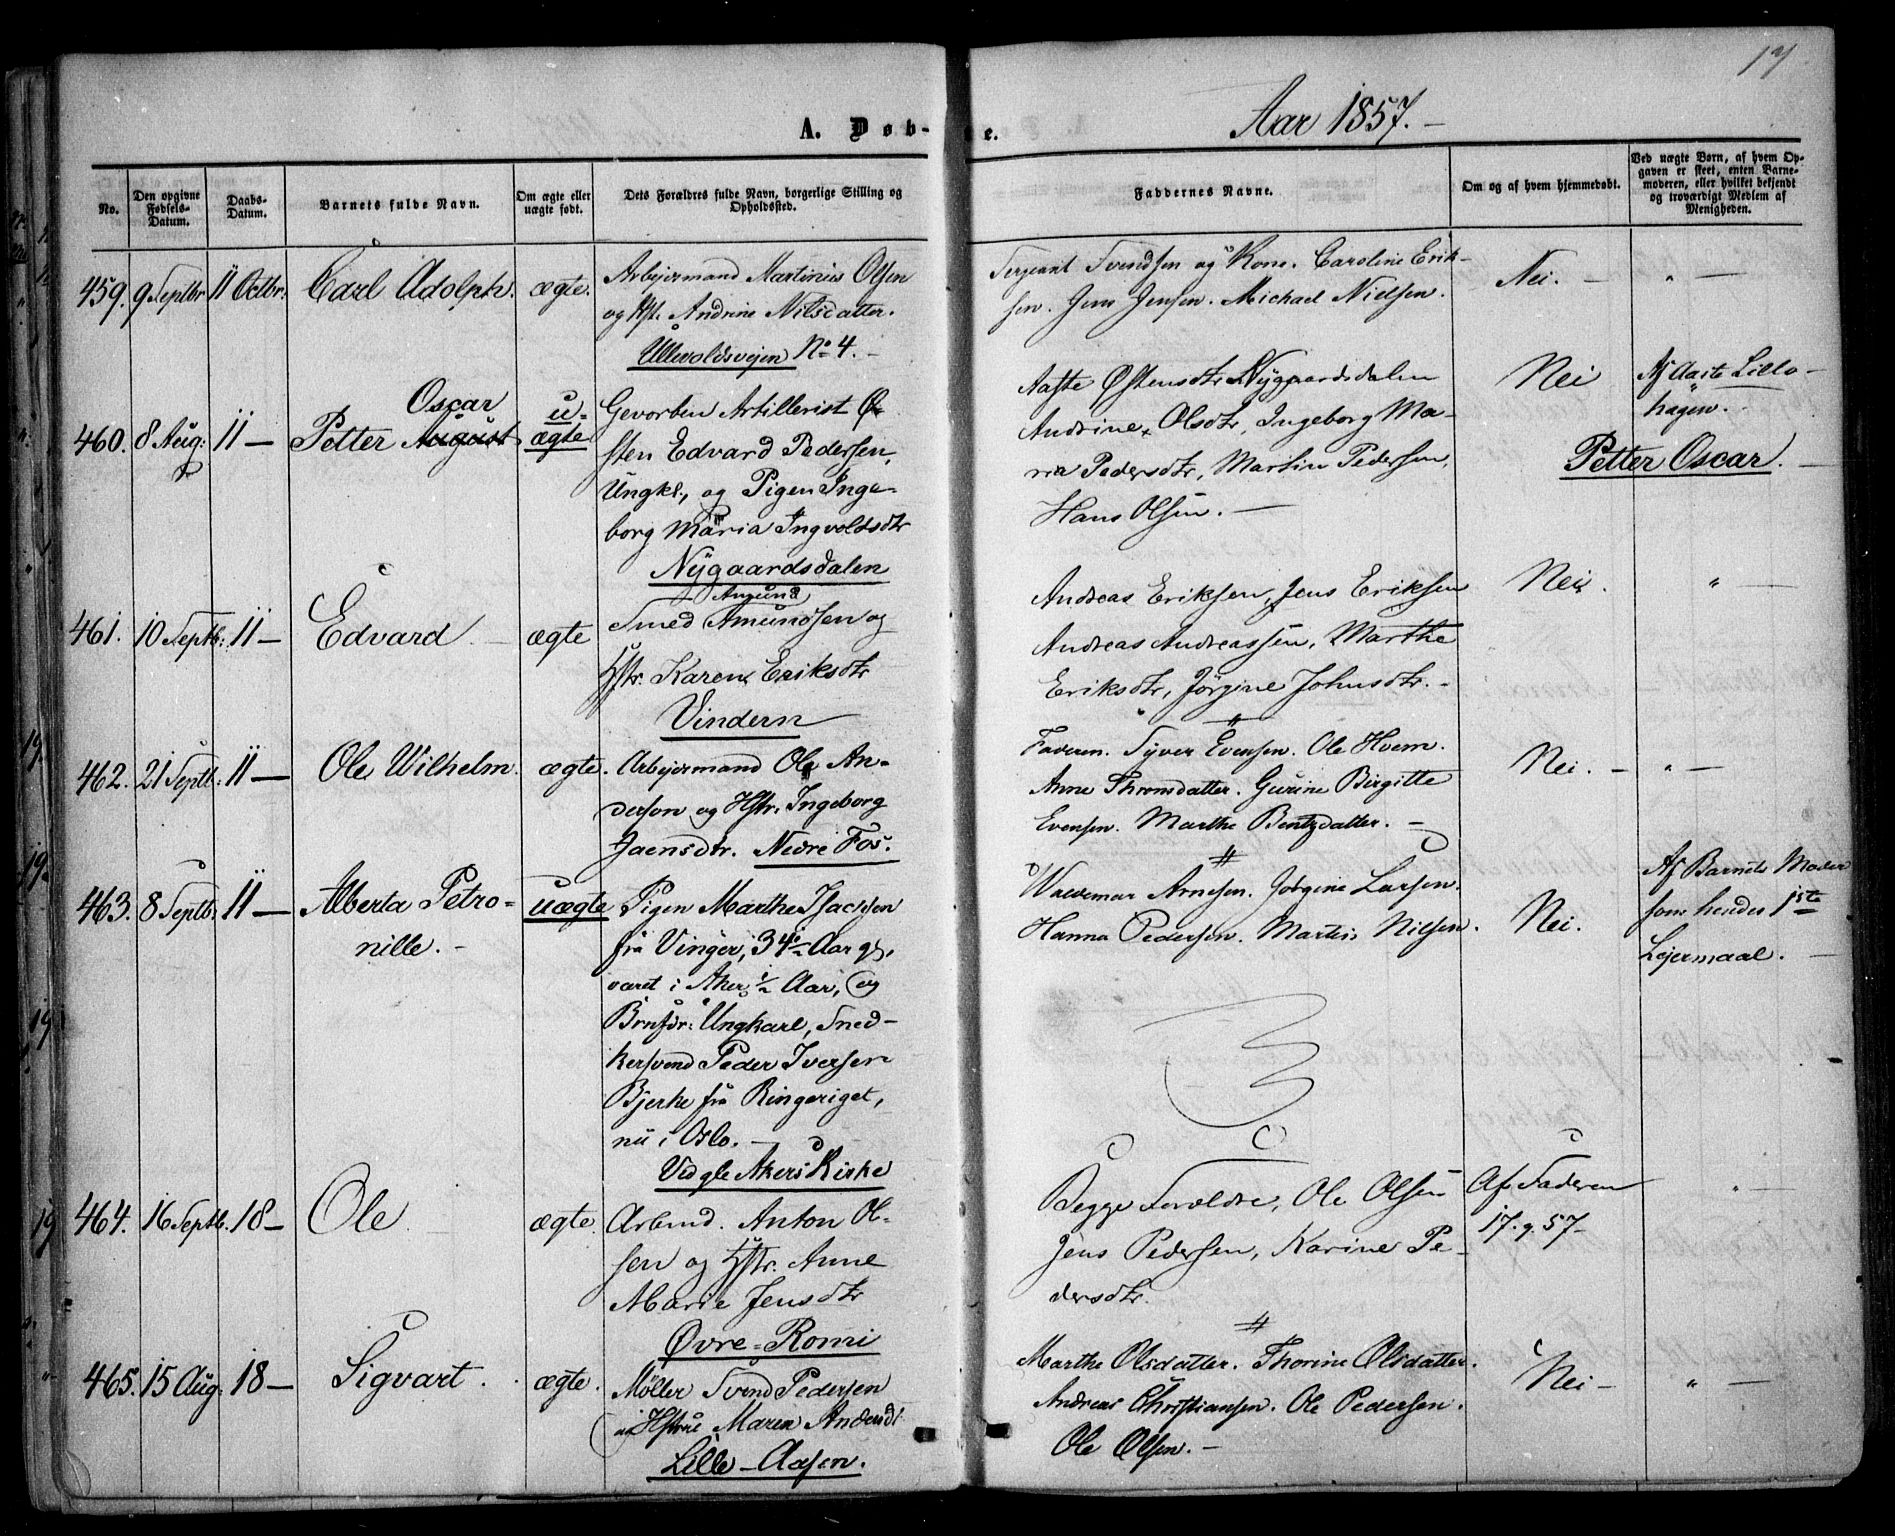 17
A. Døb-
e.
Aar 1857.-
No.
Den opgivne Fødsels-Datum.
Daabs-Datum.
Barnets fulde Navn.
Om ægte eller uægte født.
Dets Forældres fulde Navn, borgerlige Stilling og Opholdssted.
Faddernes Navne.
Om og af hvem hjemmedøbt.
Ved uægte Børn, af hvem Opgaven er skeet, enten Barnemoderen, eller hvilket bekjendt og troværdigt Medlem af Menigheden.
459. 9 Septbr 11 Octbr. Carl Adolph. ægte.
Arbejdsmand Martinius Olsen
og Hst. Andrine Nilsdatter.
Ullevoldsvejen No 4. -
Sergeant Svendsen og Kone. Caroline Erik-
sen. Jens Jensen. Michael Nielsen.
Nei. - " -
460. 8 Aug: 11 - Petter August Oscar u-ægte
Gevorben Artillerist Ø-
sten Edvard Pedersen,
Ungkl., og Pigen Inge-
borg Maria Ingvoldsdtr
Nygaardsdalen
Aaste Østensdtr Nygaardsdalen
Andrine Olsdtr, Ingeborg Ma-
ria Pedersdtr, Martin Pedersen,
Hans Olsen. -
Nei
Af Aaste Lillo-
hagen.
Petter Oscar. -
461. 10 Septb: 11 - Edvard ægte
Amund
Smed Amundsen og
Hstr. Karen Eriksdtr
Vindern
Andreas Eriksen, Jens Eriksen
Andreas Andreassen, Marthe
Eriksdtr, Jörgine Johnsdtr. -
Nei. " -
462. 21 Septb: 11 - Ole Wilhelm. ægte.
Arbejdsmand Ole An-
dersen og Hstr. Ingeborg
Jaensdtr. Nedre Fos.
Faderen. Syver Evensen. Ole Hoem.
Anne Thronsdatter. Gurine Birgitte
Evensen. Marthe Bentzdatter. -
Nei. - " -
463. 8 Septb: 11 - Alberta Petro-
nille. -
uægte
Pigen Marthe Isachsen
fra Vinger, 34 Aar gl,
været i Aker 1/2 Aar, og
Brnfdr: Ungkarl, Sned-
kersvend Peder Iversen
Bjerke fra Ringeriget,
nu i Oslo. -
Ved gle Akers Kirke
Waldemar Arnesen. Jörgine Larsen.
Hanna Pedersen. Martin Nilsen.
Nei.
Af Barnets Moder
som hendes 1ste
Lejermaal. -
464. 16 Septb. 18 - Ole ægte.
Arbmd. Anton Ol-
sen og Hstr. Anne
Marie Jensdtr
Øvre-Romi
Begge Forældre, Ole Olsen
Jens Pedersen, Karine Pe-
dersdtr.
Af Faderen
17. 9. 57 -
" -
465. 15 Aug: 18 - Sigvart. ægte.
Møller Svend Pedersen
og Hstrue Maren Andersdt
Lille-Aasen.
Marthe Olsdatter. Thorine Olsdatter.
Andreas Christiansen. Ole Pedersen.
Ole Olsen. -
Nei - " -